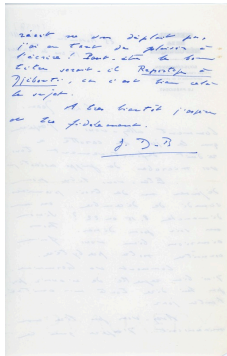 récit ne vous déplaît pas,
j'ai eu tant de plaisir à
l'écrire ! Peut-être le bon
titre serait-il Reportage à
Djibouti, car c'est bien cela
le sujet.
A très bientôt j'espère
et très fidèlement.
J. D-B